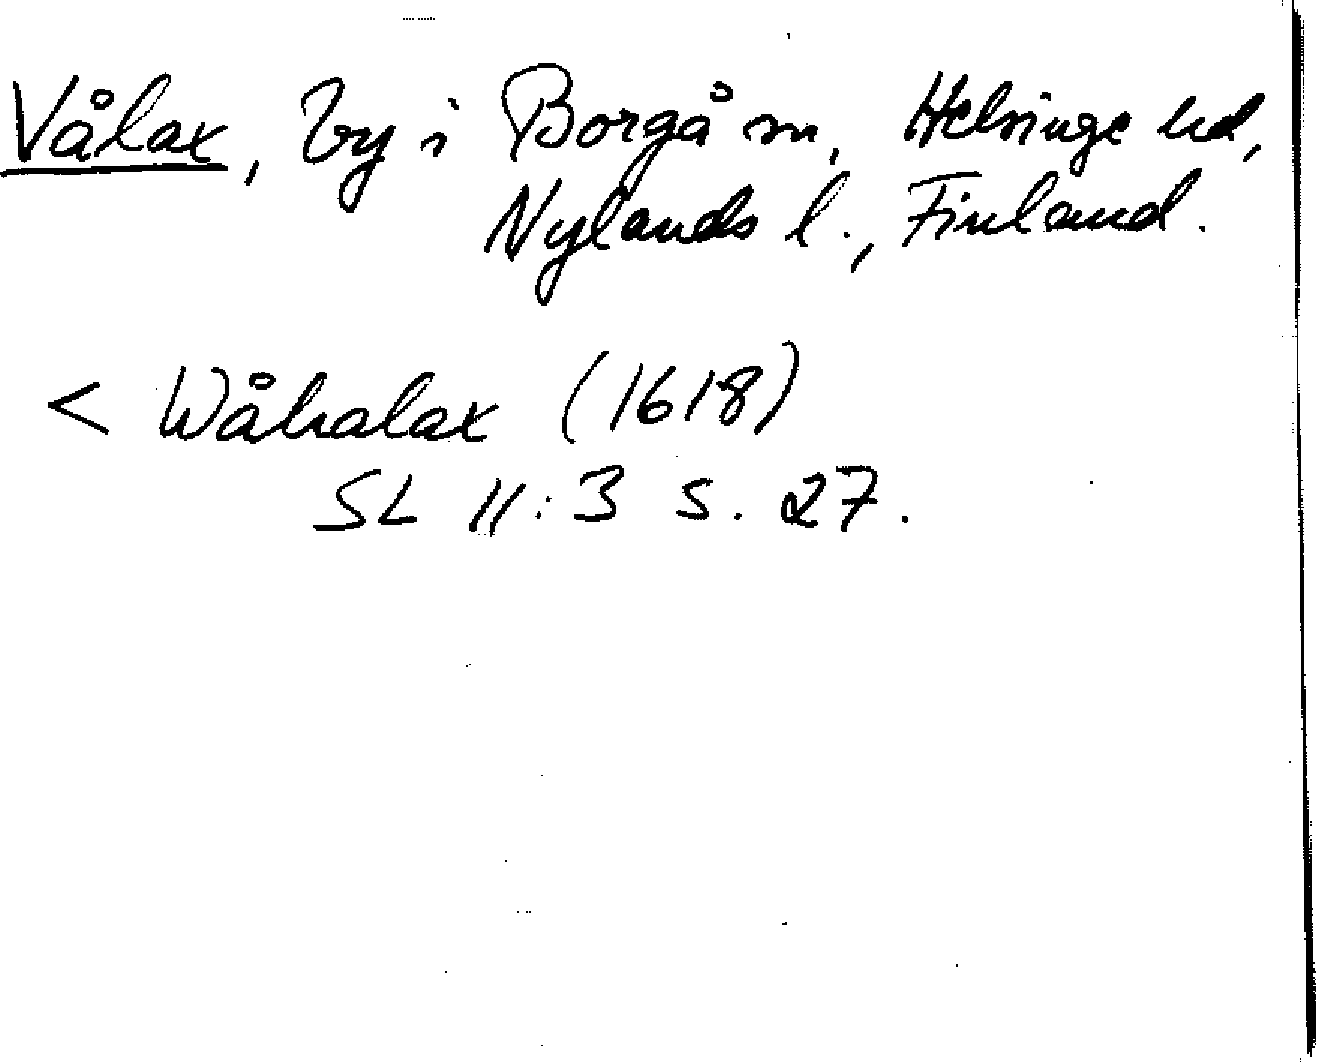 Vålax, by i Borgå sn, Helsinge hd,
Nylands l., Finland.
< Wåhalax (1618)
SL II:3 s. 27.